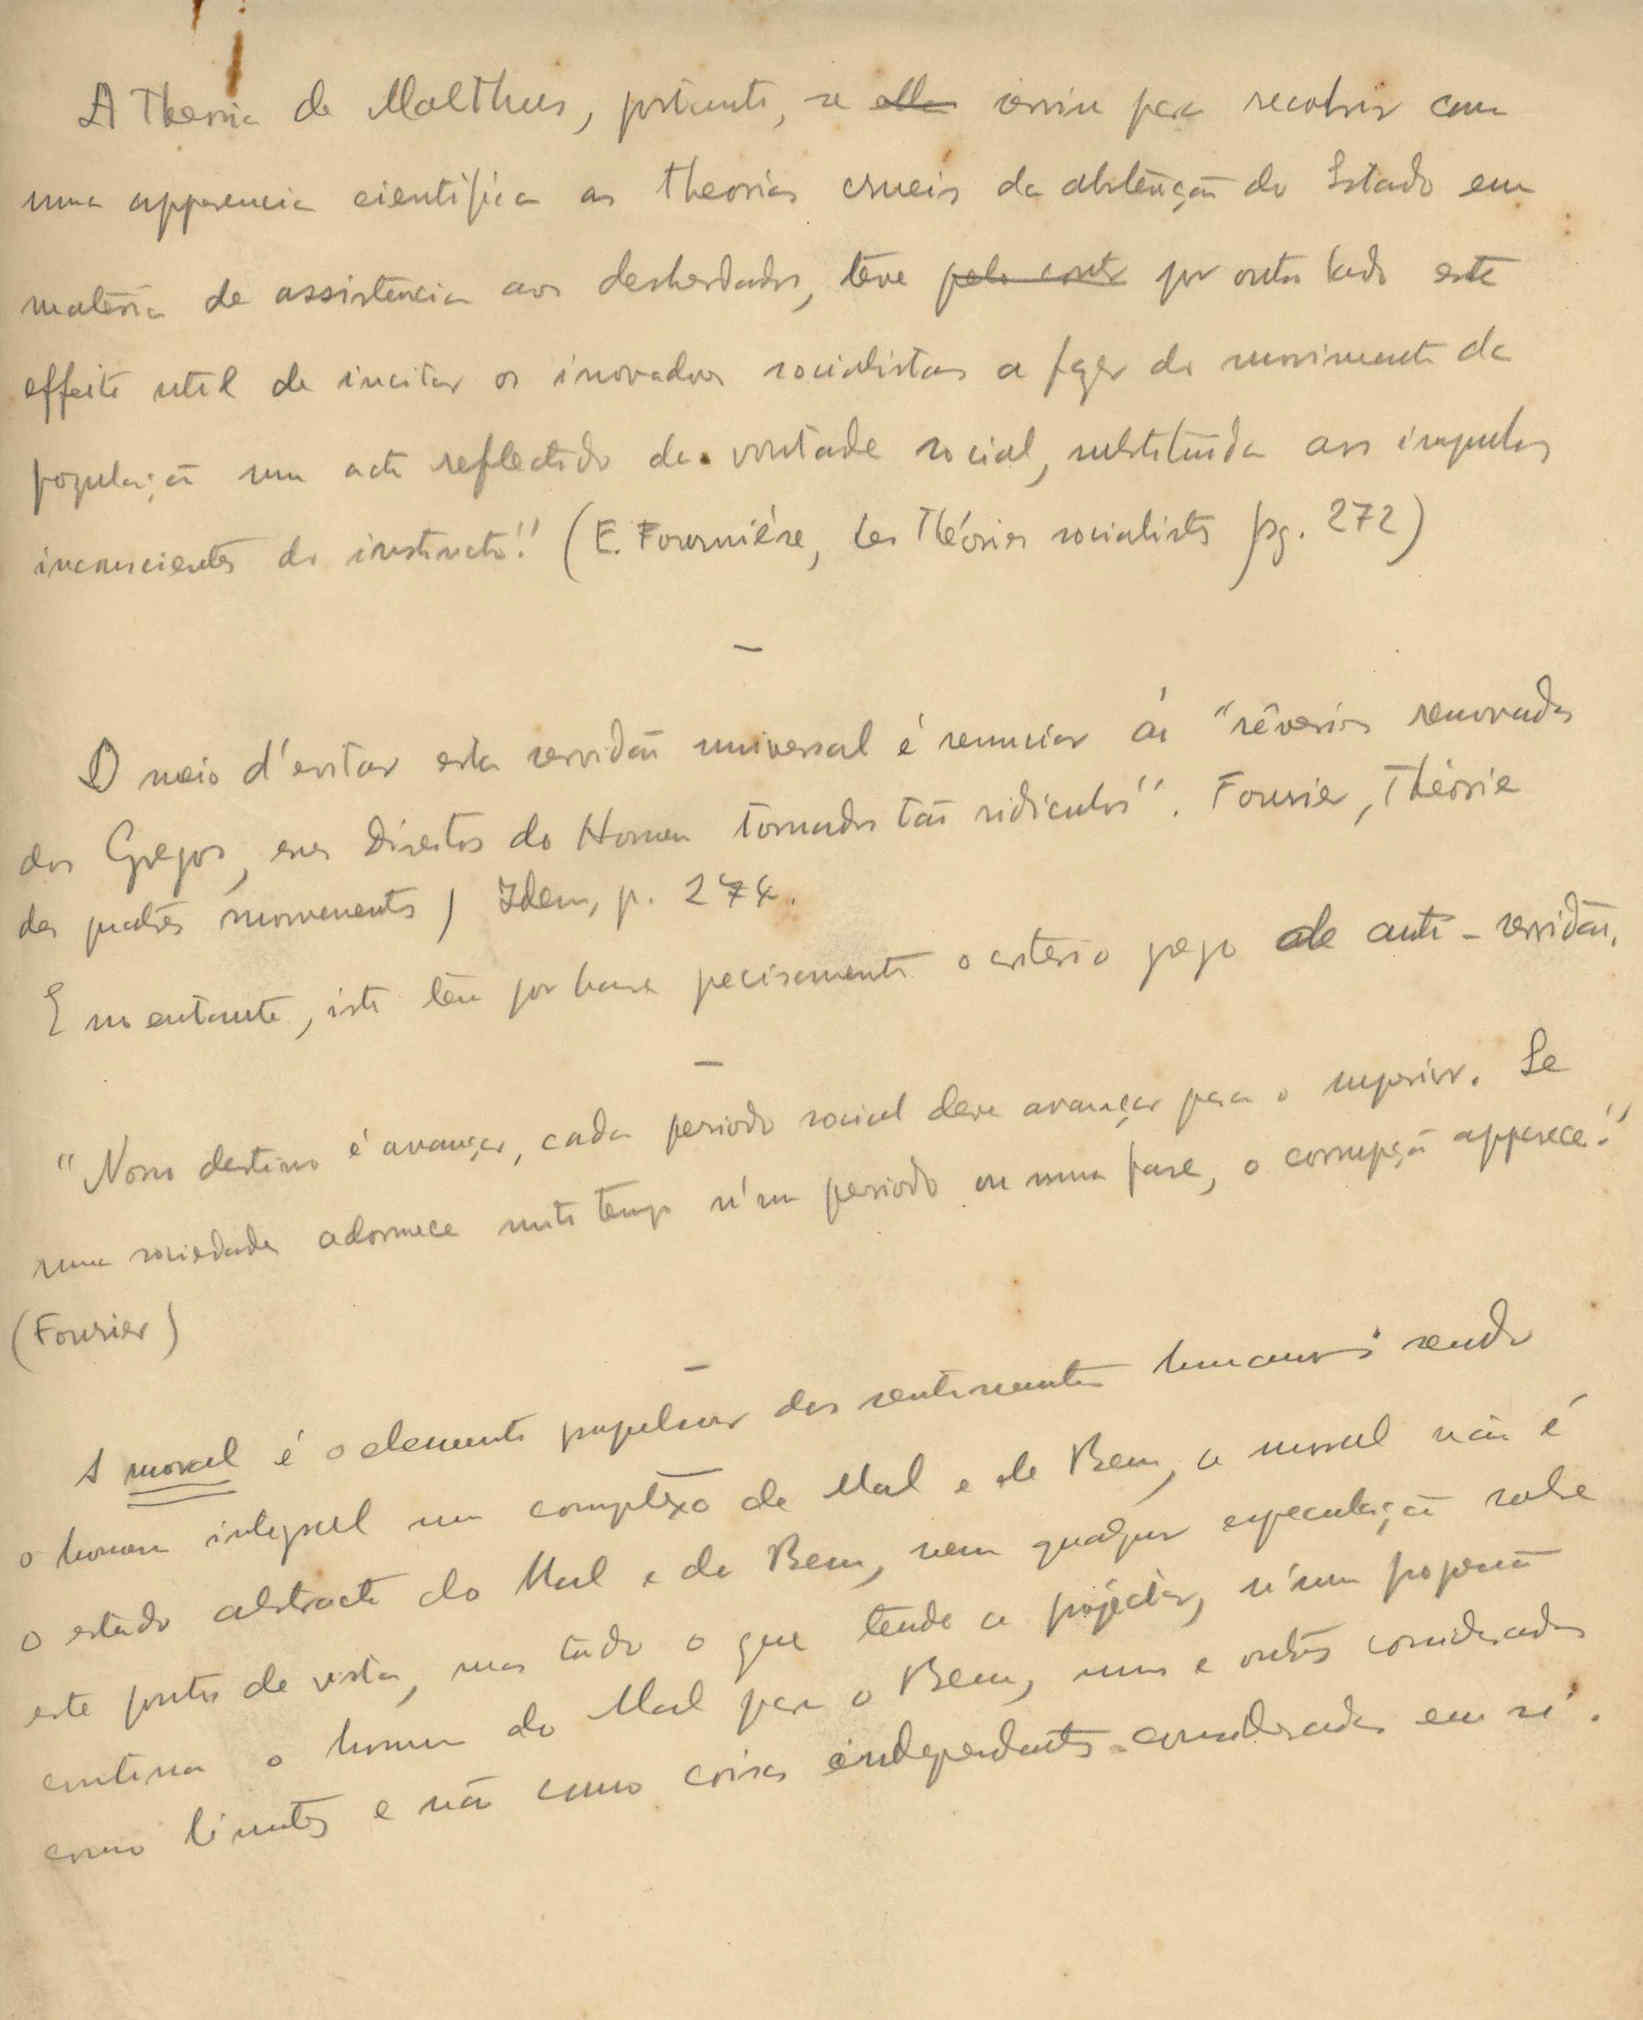 A Theoria de Malthus, portanto, se ella serviu para recobrir com
uma apparencia cientifica as theorias crueis da abstenção do Estado em
materia de assistencia aos desherdados, teve pelo contr por outro lado este
effeito util de incitar os inovadores socialistas a fazer do movimento da
população um acto reflectido da vontade social, substituida aos impulsos
inconscientes do instincto." (E. Fournière, Les Théories socialistes pg. 272)
—
O meio d'evitar esta servidão universal é renunciar ás "rêveries renovadas
dos Gregos, esses Direitos do Homem tornados tão ridiculos". Fourier, Théorie
des quatres mouvements, Idem, p. 274.
E no entanto, isto tem por base precisamente o criterio grego de anti-servidão.
—
"Nosso destino é avançar, cada periodo social deve avançar para o superior. Se
uma sociedade adormece muito tempo n'um periodo ou numa fase, a corrupção apparece."
(Fourier)
—
A moral é o elemento propulsor dos sentimentos humanos; sendo
o homem integral um complexo de Mal e de Bem, a moral não é
o estado abstracto do Mal e do Bem, nem qualquer especulação sobre
este ponto de vista, mas tudo o que tende a projectar, n'um
continuo o homem do Mal para o Bem, uns e outros considerados
como limites e não como coisas independentes consideradas em si.